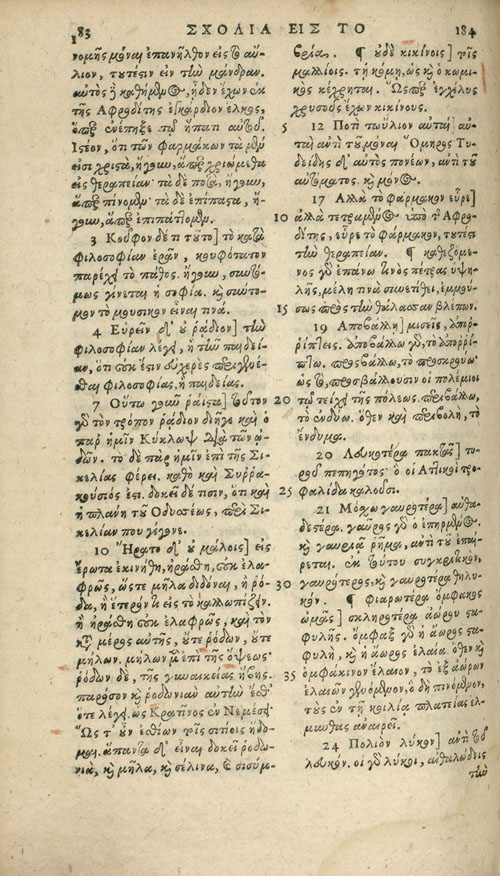 183 ΣΧΟΛΙΑ ΕΙΣ ΤΟ 184
νομῆς μόναι ἐπανῆλθον εἰς τὸ αὔ-
λιον, τουτέστιν εἰν τὴν μάνδραν.
αὐτὸς ἢ καθήμενος, ἤδεν ἔχων ἐκ
τῆς Ἀφροδίτης ἐγκάρδιον ἕλκος,
ὅπερ ἐνέπηξε τῷ ἥπατι αὐτοῦ.
Ἰστέον, ὅτι τῶν φαρμάκων τὰ μέν
εἰσι χριστὰ, ἤγουν, ἅπερ χριώμεθα
εἰς θεραπείαν· τὰ δὲ ποτὰ, ἤγουν,
ἅπερ πίνομεν· τὰ δὲ ἐπίπαστα, ἤ-
γουν, ἅπερ ἐπιπάττομεν.
3 Κοῦφον δέ τι τοῦτο] τὸ κατὰ
φιλοσοφίαν ἐρᾷν, κουφότατον
παρέχει τὸ πάθος. ἤγουν, συντό-
μως γίνεται ἡ σοφία. καὶ σύντο-
μον τὸ μουσικὸν εἶναί τινα.
4 Εὑρεῖν δ' οὐ ῥάδιον] τὴν
φιλοσοφίαν λέγει, ἢ τὴν παιδεί-
αν, ὅτι οὐκ ἔστιν εὐχερὲς περιγενέ-
σθαι φιλοσοφίας, ἢ παιδείας.
7 Οὕτω γοῦν ῥάιστα] τοῦτον
γὸ τὸν τρόπον ῥάδιον διῆγε καὶ ὁ
παρ' ἡμῖν Κύκλωψ διὰ τῶν ᾠ-
δῶν. τὸ δὲ παρ' ἡμῖν ἐπὶ τῆς Σι-
κελίας φέρει. καθὸ καὶ Συρρα-
κούσιός ἐστι. δοκεῖ δέ τισιν, ὅτι καὶ
ἡ πλάνη τοῦ Ὀδυσσέως, περὶ Σι-
κελίαν που γέγονε.
10 Ἤρατο δ' οὐ μάλοις] εἰς
ἔρωτα ἐκινήθη, ἠράσθη, οὐκ ἐλα-
φρῶς, ὥστε μῆλα διδόναι, ἢ ῥό-
δα, ἢ ἕτερόν τι εἰς τὸ καλλωπίζειν.
ἢ ἠράσθη οὐκ ἐλαφρῶς, καὶ τὸν
καὶ μέρος αὐτῆς, οὔτε ῥόδων, οὔτε
μήλων. μήλων μὲν ἐπὶ τῆς ὄψεως·
ῥόδων δὲ, τῆς γυναικείας ἥβης.
παρόσον καὶ ῥοδωνιὰν αὐτὴν ἔσθ'
ὅτε λέγει. ὡς Κρατῖνος ἐν Νεμέσει·
Ὥς τ' οὖν ἐσθίων τοῖς σιτίοις ἥδο-
μαι. ἅπαντα δ' εἶναι δοκεῖ ῥοδω-
νιὰ, καὶ μῆλα, καὶ σέλινα, καὶ σισύμ-
βρια. ¶ οὐδὲ κικίνοις] τοῖς
μαλλίοις. τῇ κόμῃ, ὡς καὶ ὁ κωμι-
κὸς κέχρηται. Ὥσπερ ἐγχέλυς
χρυσοῦς ἔχων κικίνους.
5 12 Ποτὶ τωὔλιον αὐταὶ] αὐ-
ταὶ ἀντὶ τοῦ μόναι· Ὅμηρος Τυ-
δείδης δ' αὐτὸς πονέων, ἀντὶ τοῦ
αὐτόματος. καὶ μόνος.
17 Ἀλλὰ τὸ φάρμακον εὗρε]
10 ἀλλὰ τετρωμένος ὑπὸ τῆς Ἀφρο-
δίτης, εὗρε τὸ φάρμακον, τουτέστι
τὴν θεραπείαν. ¶ καθεζόμε-
νος γὸ ἐπάνω τινὸς πέτρας ὑψη-
λῆς, μέλη τινὰ συνετίθει, ἐμμού-
15 σως πρὸς τὴν θάλασσαν βλέπων.
19 Ἀποβάλλῃ] μισεῖς, ἀπορ-
ρίπτεις. ἀποβάλλω γὸ, τὸ ἀπορρί-
πτω. προσβάλλω, τὸ προσκρούω·
ὡς τὸ, προσβάλλουσιν οἱ πολέμιοι
20 τῷ τείχει τῆς πόλεως. περιβάλλω,
τὸ ἐνδύω. ὅθεν καὶ περιβολὴ, τὸ
ἔνδυμα.
20 Λευκοτέρα πακτᾶς] τυ-
ροῦ πεπηγότος· ὃ οἱ Ἀττικοὶ τρο-
25 φαλίδα καλοῦσι.
21 Μόσχω γαυροτέρα] αὐθα-
δεστέρα. γαῦρος γὸ ὁ ἐπηρμένος.
καὶ γαυριᾷ ῥῆμα, ἀντὶ τοῦ ἐπαί-
ρεται. ἐκ τούτου συγκριτικὸν,
30 γαυρότερος, καὶ γαυροτέρα θηλυ-
κόν. ¶ φιαρωτέρα ὄμφακος
ὠμᾶς] σκληροτέρα ἀώρου στα-
φυλῆς. ὄμφαξ γὸ ἡ ἄωρος στα-
φυλὴ, καὶ ἡ ἄωρος ἐλαία. ὅθεν καὶ
35 ὀμφάκινον ἔλαιον, τὸ ἐξ ἀώρων
ἐλαιῶν γενόμενον, ὃ δὴ πινόμενον,
τοὺς ἐν τῇ κοιλίᾳ πλατείας ἕλ-
μινθας ἀναιρεῖ.
24 Πολιὸν λύκον] ἀντὶ τοῦ
λευκόν. οἱ γὸ λύκοι, αἰθαλώδεις
τὴν